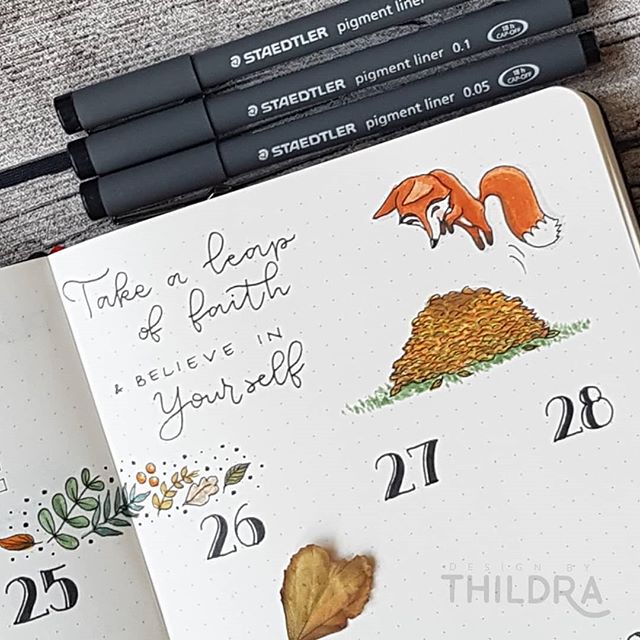 STAEDTLER pigment liner
STAEDTLER pigment liner 0.1 18 h CAP-OFF
STAEDTLER pigment liner 0.05 18 h CAP-OFF
Take a leap
of faith
& BELIEVE IN
Yourself
25
26
27
28
DESIGN BY
THILDRA